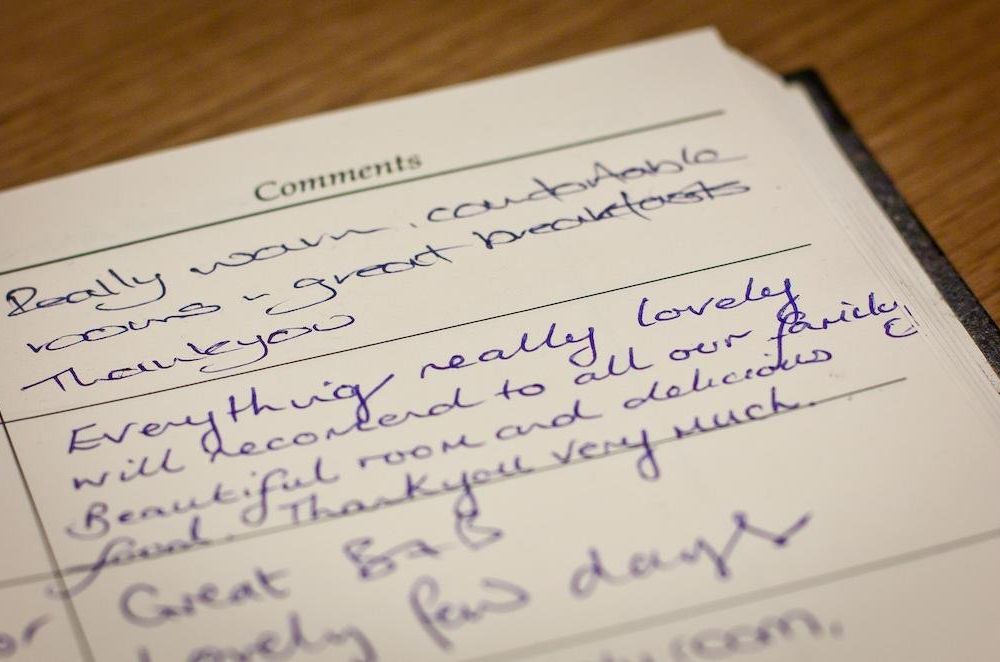 Comments
Really warm, comfortable
rooms - great breakfasts
Thankyou
Everything really lovely
will recomend to all our family &
Beautiful room and delicious
food. Thankyou very much.
Great B&B
Lovely few days
room,